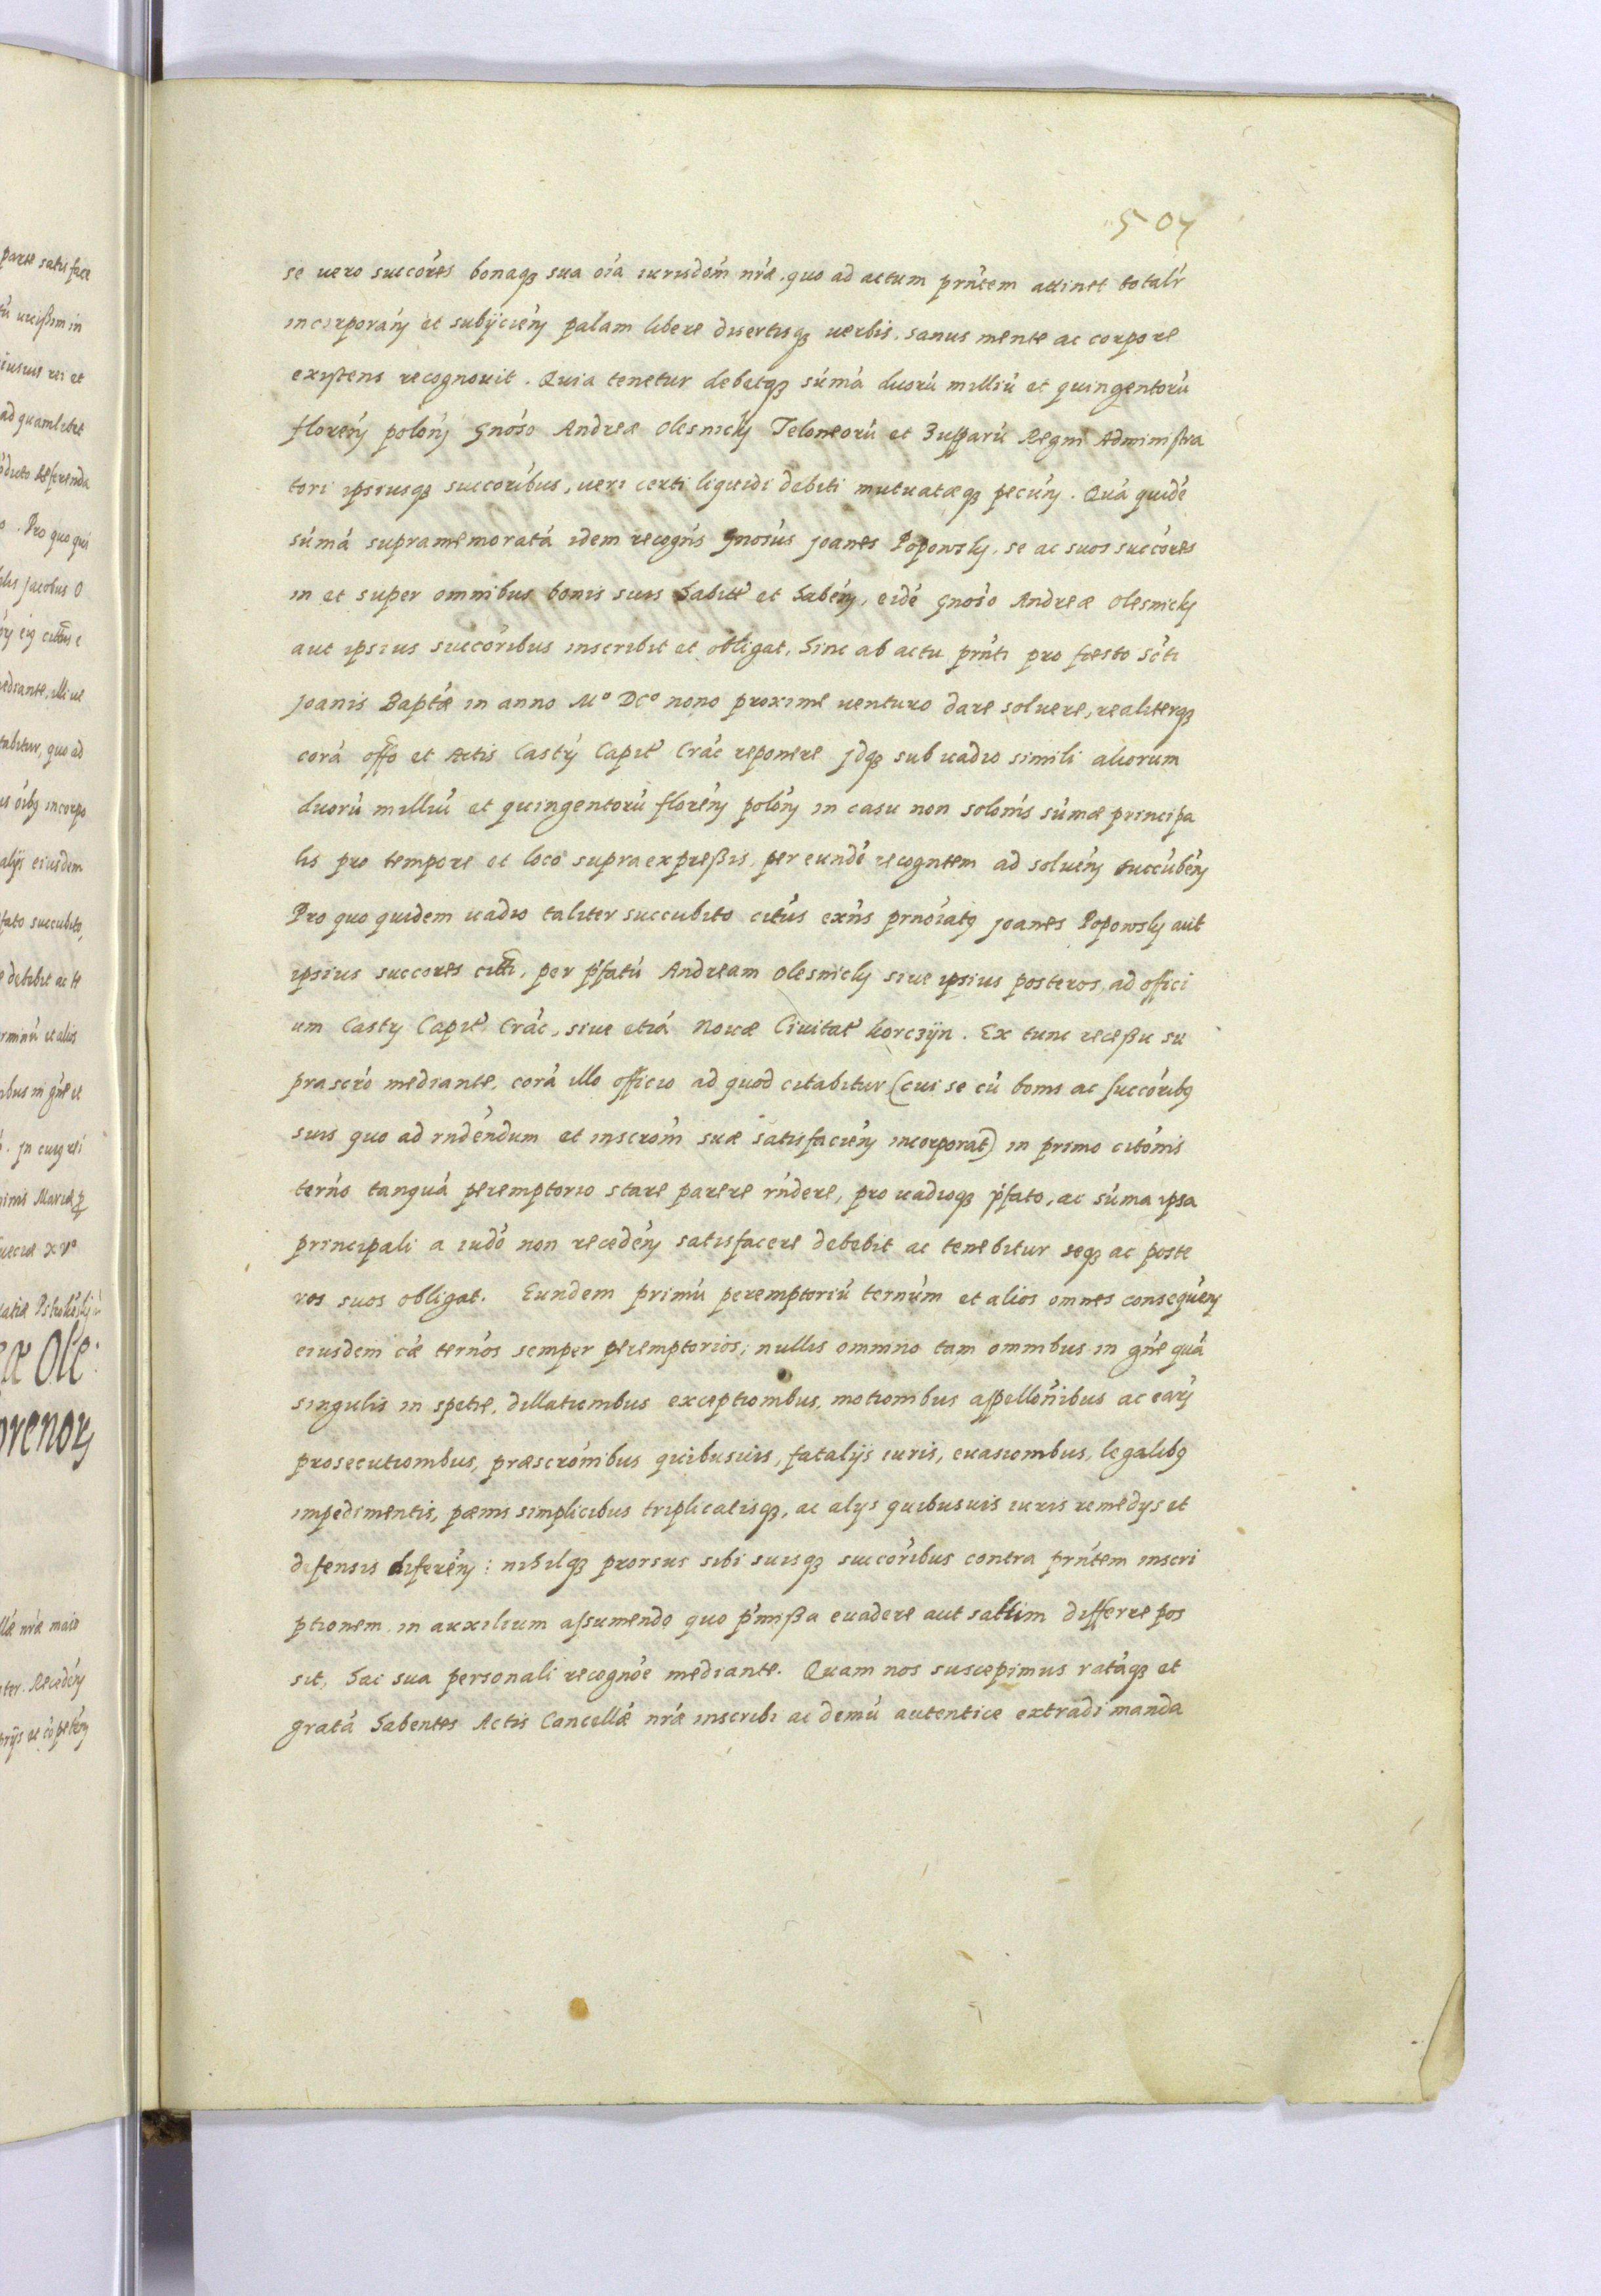 504
se uero succo͂res bonaq3 sua oı͂a iurisdom͂ nr͂æ, quo ad actum prn͂tem attinet totalr͂
incorporan͂ et subÿcien͂ palam libere disertisq3 uerbis, sanus mente ac corpore
existens recognouit. Quia tenetur debetq3 sum͂a duorú milliú et quingentorú
floren͂ polon͂ Gnoso͂ Andreæ Olesnicky Teloneorú et Zupparú Regni Administra
tori ipsiusq3 succorı͂bus, ueri certi liquidi debiti mutuatæq3 pecun͂. Quá quidé
súmá supramemoratá idem recogn͂s Gnosu͂s Joanes Popowsky, se ac suos succo͂res
in et super omnibus bonis suis habitꝭ et haben͂, eidé Gnoso͂ Andreæ Olesnicky
aut ipsius succorı͂bus inscribit et obligat, hinc ab actu prn͂ti pro foesto Sc͂ti
Joanis Bapt͂æ in anno Mº DCº nono proxime uenturo dare soluere, realiterq3
corá offo͂ et Actis Castrꝭ Capitꝭ Crac͂ reponere Jdq3 sub uadio simili aliorum
duorú milliú et quingentorú floren͂ polon͂ in casu non solon͂is súmæ principa
lis pro tempore et loco supraexpreßis, per eundé recogn͂tem ad soluen͂ succuben͂
Pro quo quidem uadio taliter succubito citu͂s exn͂s prno͂iatꝰ Joanes Popowsky aut
ipsius succores citti͂, per pꝭfatú Andream Olesnicky siue ipsius posteros, ad offici
um Castrꝭ Capitꝭ Crac͂, siue etiá Nouæ Ciuitatꝭ korczÿn. Ex tunc receßu su
prascro͂ mediante, corá illo officio ad quod citabitur (cui se cú bonis ac succorı͂bꝰ
suis quo ad rn͂dendum et inscrom͂ suæ satisfacien͂ incorporat) in primo citon͂is
tern͂o tanquá peremptorio stare parere rn͂dere, pro uadioq3 pꝭfato, ac súma ipsa
principali a iudo͂ non receden͂ satisfacere debebit ac tenebitur seq3 ac poste
ros suos obligat. Eundem primú peremptoriú ternu͂m et alios omnes consequen͂
eiusdem cæ͂ terno͂s semper peremptorios, nullis omnino tam omnibus in gn͂e quá
singulis in spetie, dillationibus exceptionibus, motionibus appellon͂ibus ac earꝭ
prosecutionibus, præscron͂ibus quibusuis, fatalÿs iuris, euasionibus, legalibꝰ
impedimentis, pœnis simplicibus triplicatisq3, ac alÿs quibusuis iuris remedÿs et
defensis diferen͂: nihilq3 prorsus sibi suisq3 succorı͂bus contra prn͂tem inscri
ptionem in auxilium assumendo quo pꝭmißa euadere aut saltim differre pos
sit, hac sua personali recogno͂e mediante. Quam nos suscepimus ratáq3 et
gratá habentes Actis Cancellæ͂ nr͂æ inscribi ac demú autentice extradi manda